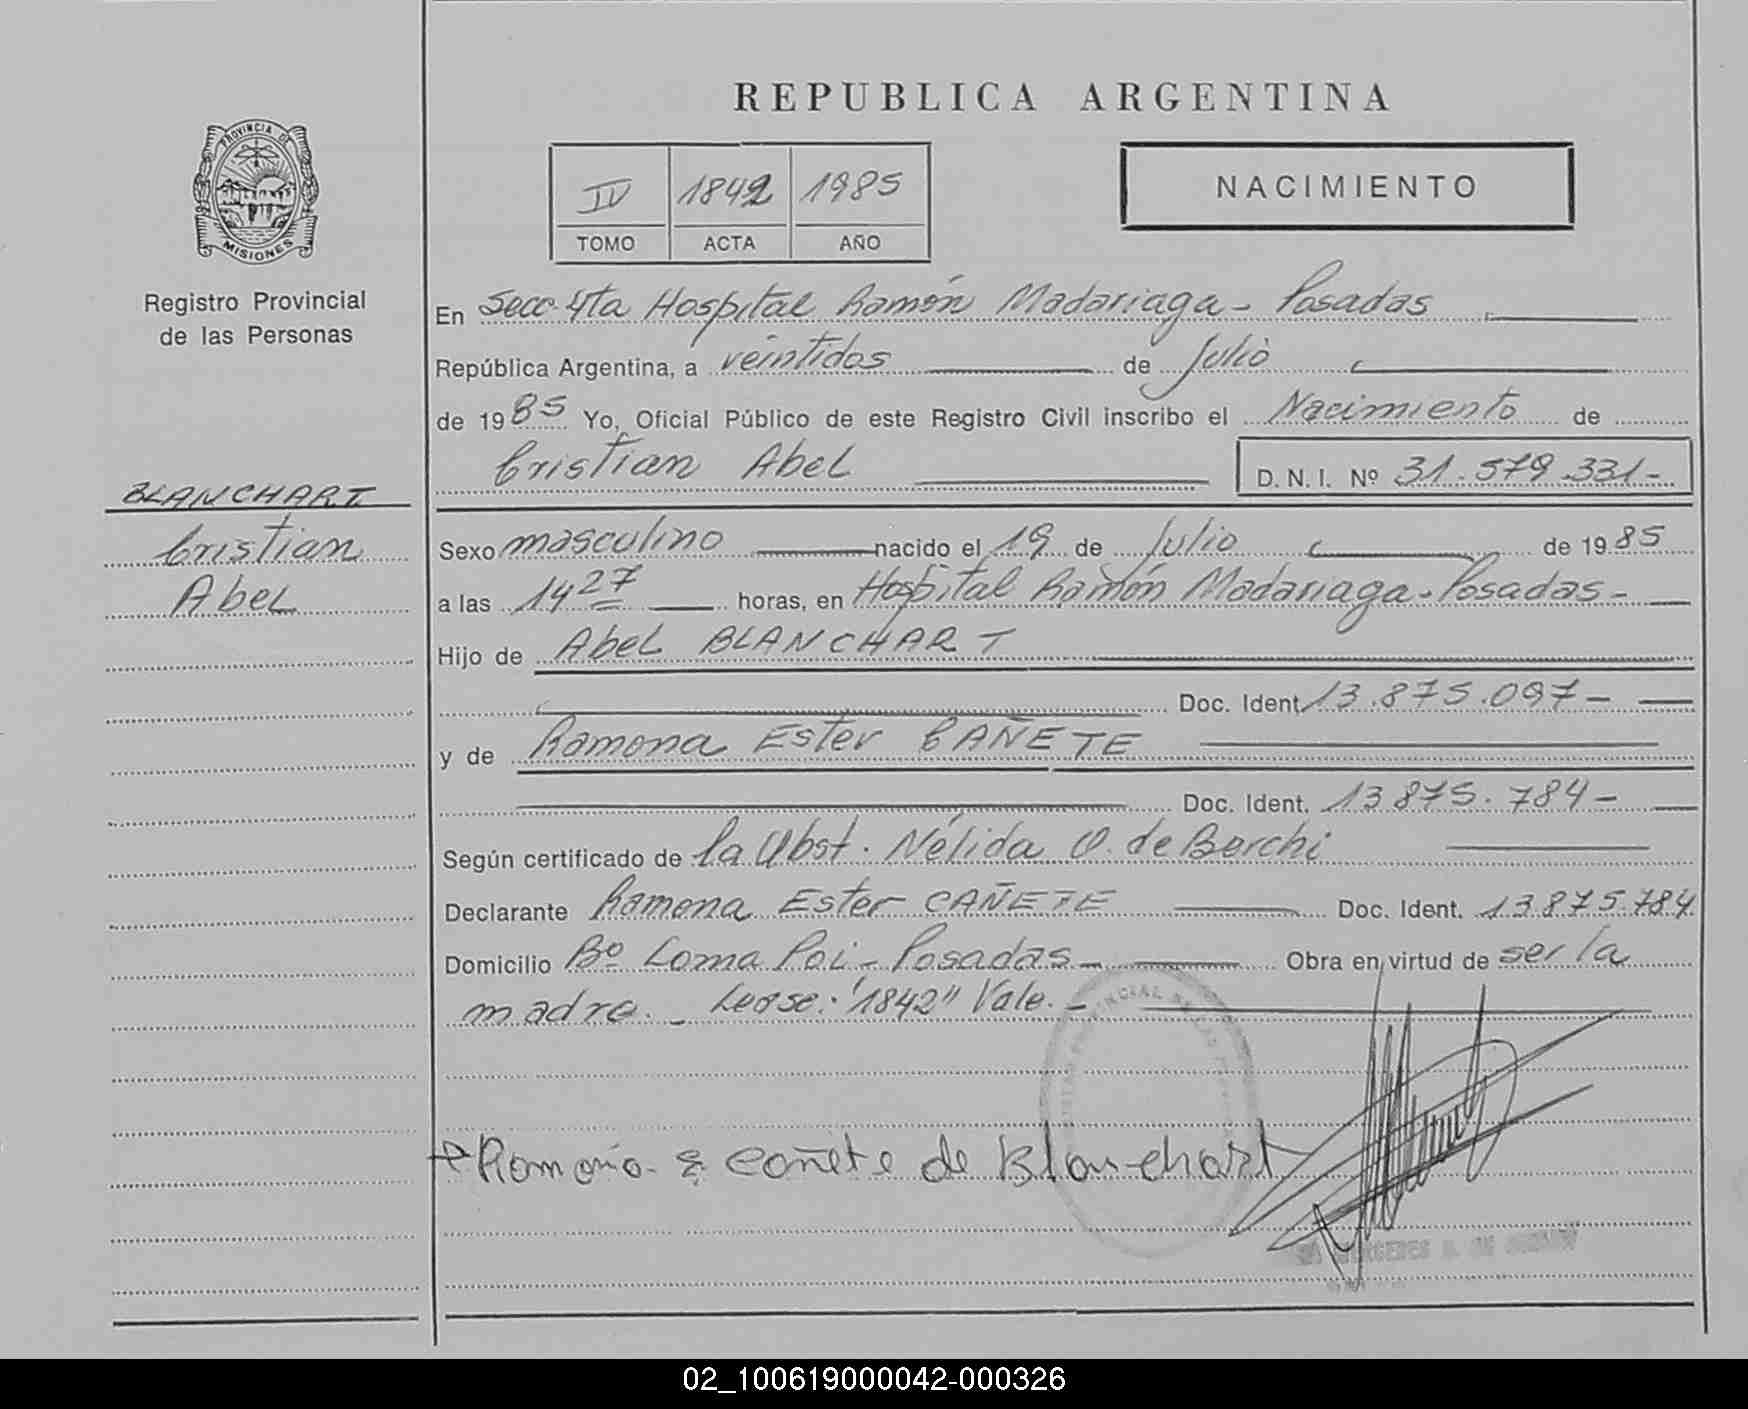 REPUBLICA ARGENTINA
PROVINCIA DE
MISIONES
Registro Provincial
de las Personas
IV 1842 1985
TOMO ACTA AÑO
NACIMIENTO
En Secc. 4ta Hospital Ramón Madariaga - Posadas
República Argentina, a veintidos de Julio
de 1985 Yo, Oficial Público de este Registro Civil inscribo el Nacimiento de
Cristian Abel D. N. I. Nº 31.579.331-
BLANCHART
Cristian
Abel
Sexo masculino nacido el 19 de Julio de 1985
a las 14 27 horas, en Hospital Ramón Madariaga - Posadas -
Hijo de Abel BLANCHART
Doc. Ident. 13.875.097 -
y de Ramona Ester CAÑETE
Doc. Ident. 13.875.784 -
Según certificado de la Obst. Nélida O. de Berchi
Declarante Ramona Ester CAÑETE Doc. Ident. 13.875.784
Domicilio Bº Loma Poi - Posadas - Obra en virtud de ser la
madre. - Lease: "1842" Vale. -
Ramona E Cañete de Blanchart
02_100619000042-000326